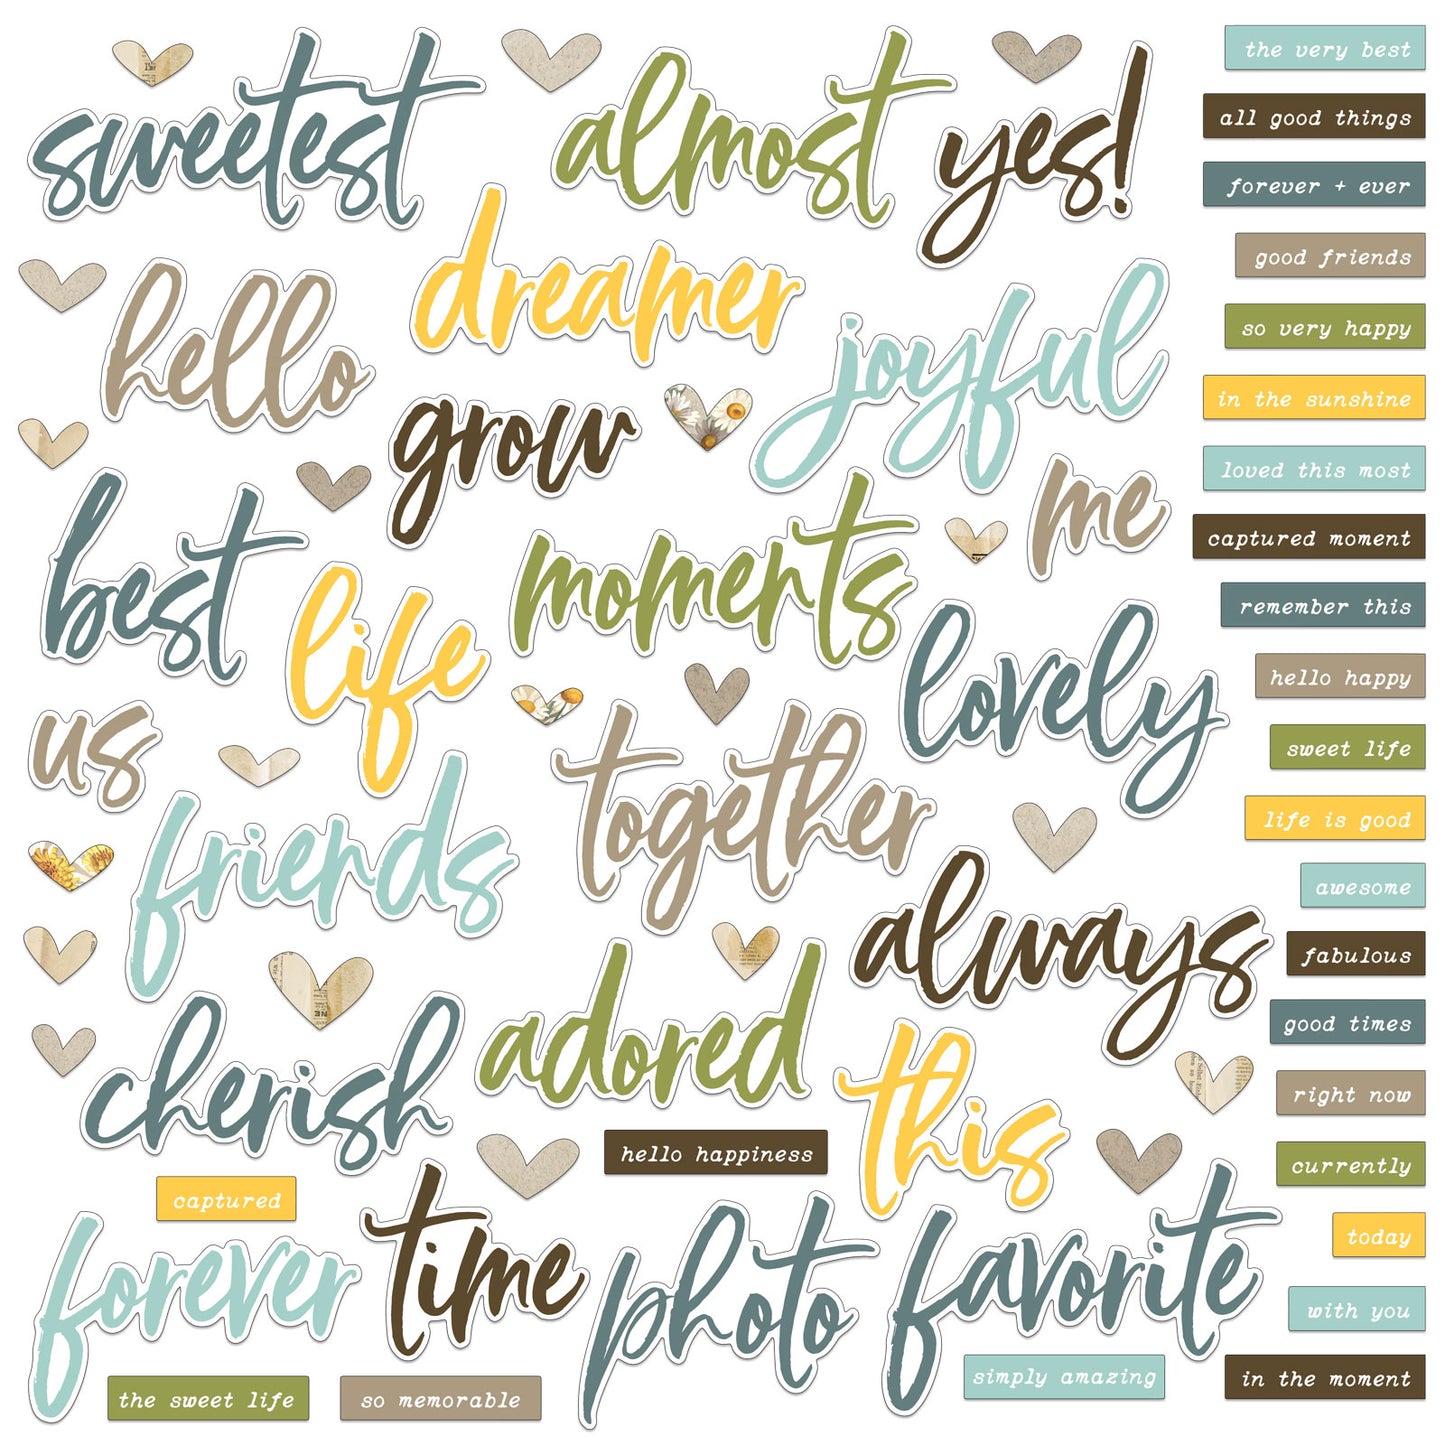 sweetest
almost
yes!
the very best
all good things
forever + ever
hello
dreamer
joyful
good friends
so very happy
grow
in the sunshine
best
life
moments
me
loved this most
captured moment
remember this
us
friends
together
lovely
hello happy
sweet life
life is good
awesome
always
fabulous
cherish
adored
this
good times
right now
hello happiness
currently
captured
forever
time
photo
favorite
today
with you
the sweet life
so memorable
simply amazing
in the moment